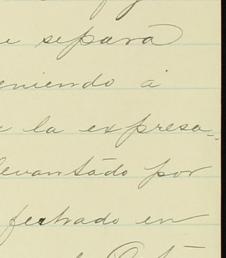 e separa
eniendo a
e la expresa-
levantado por
fechado en